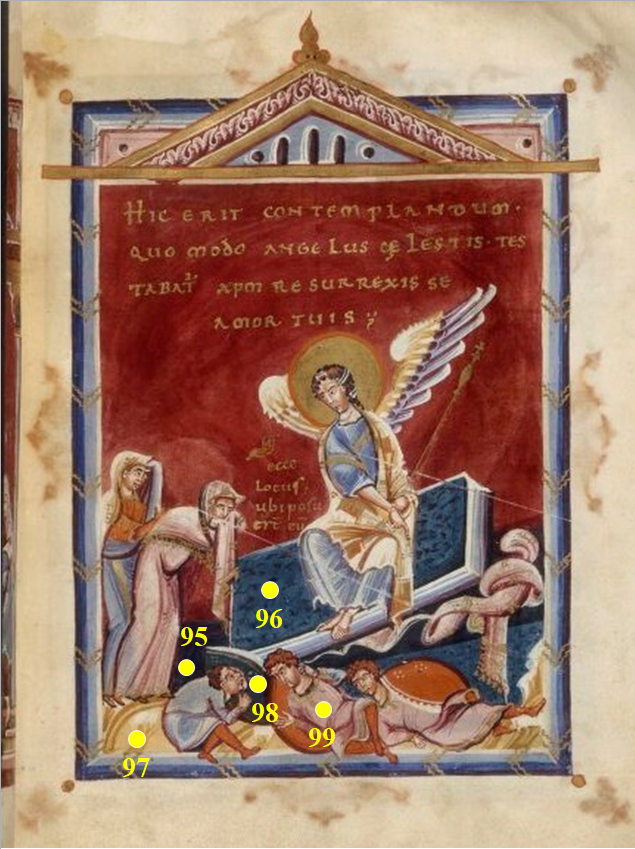 HIC ERIT CONTEMPLANDUM·
QUO MODO ANGELUS CĘLESTIS·TES
TABAT APM RESURREXISSE
AMORTUIS
ecce
Locus
ubi posu
95
96
98
99
97